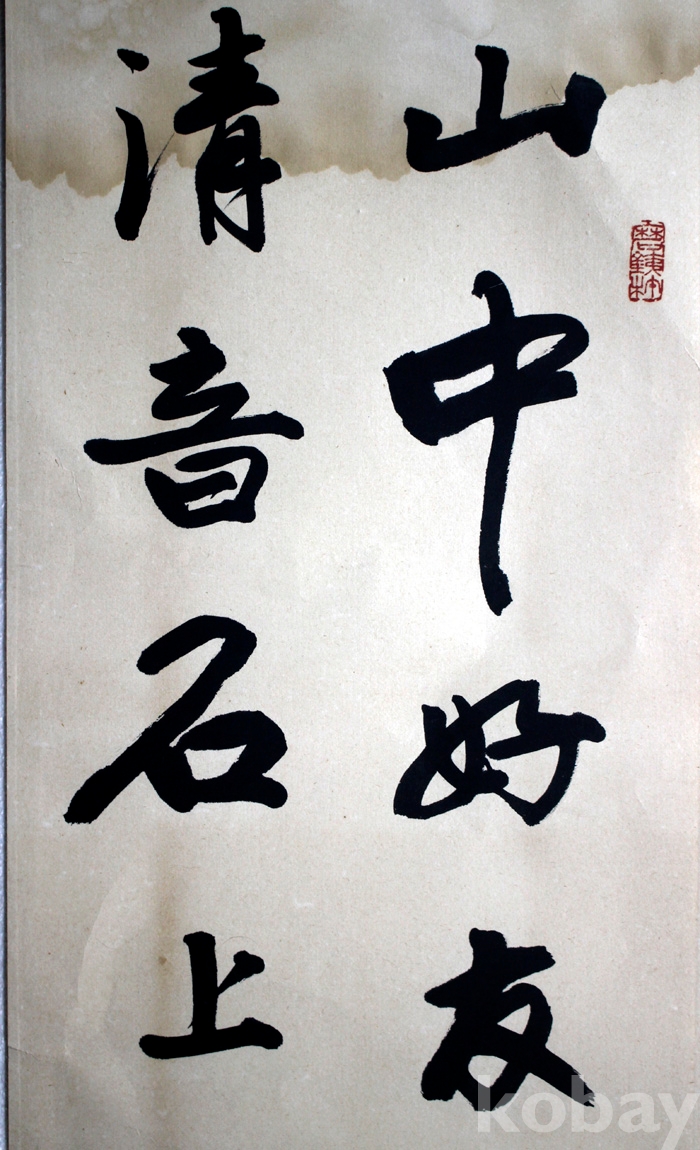 山中好友
清音石上
kobay